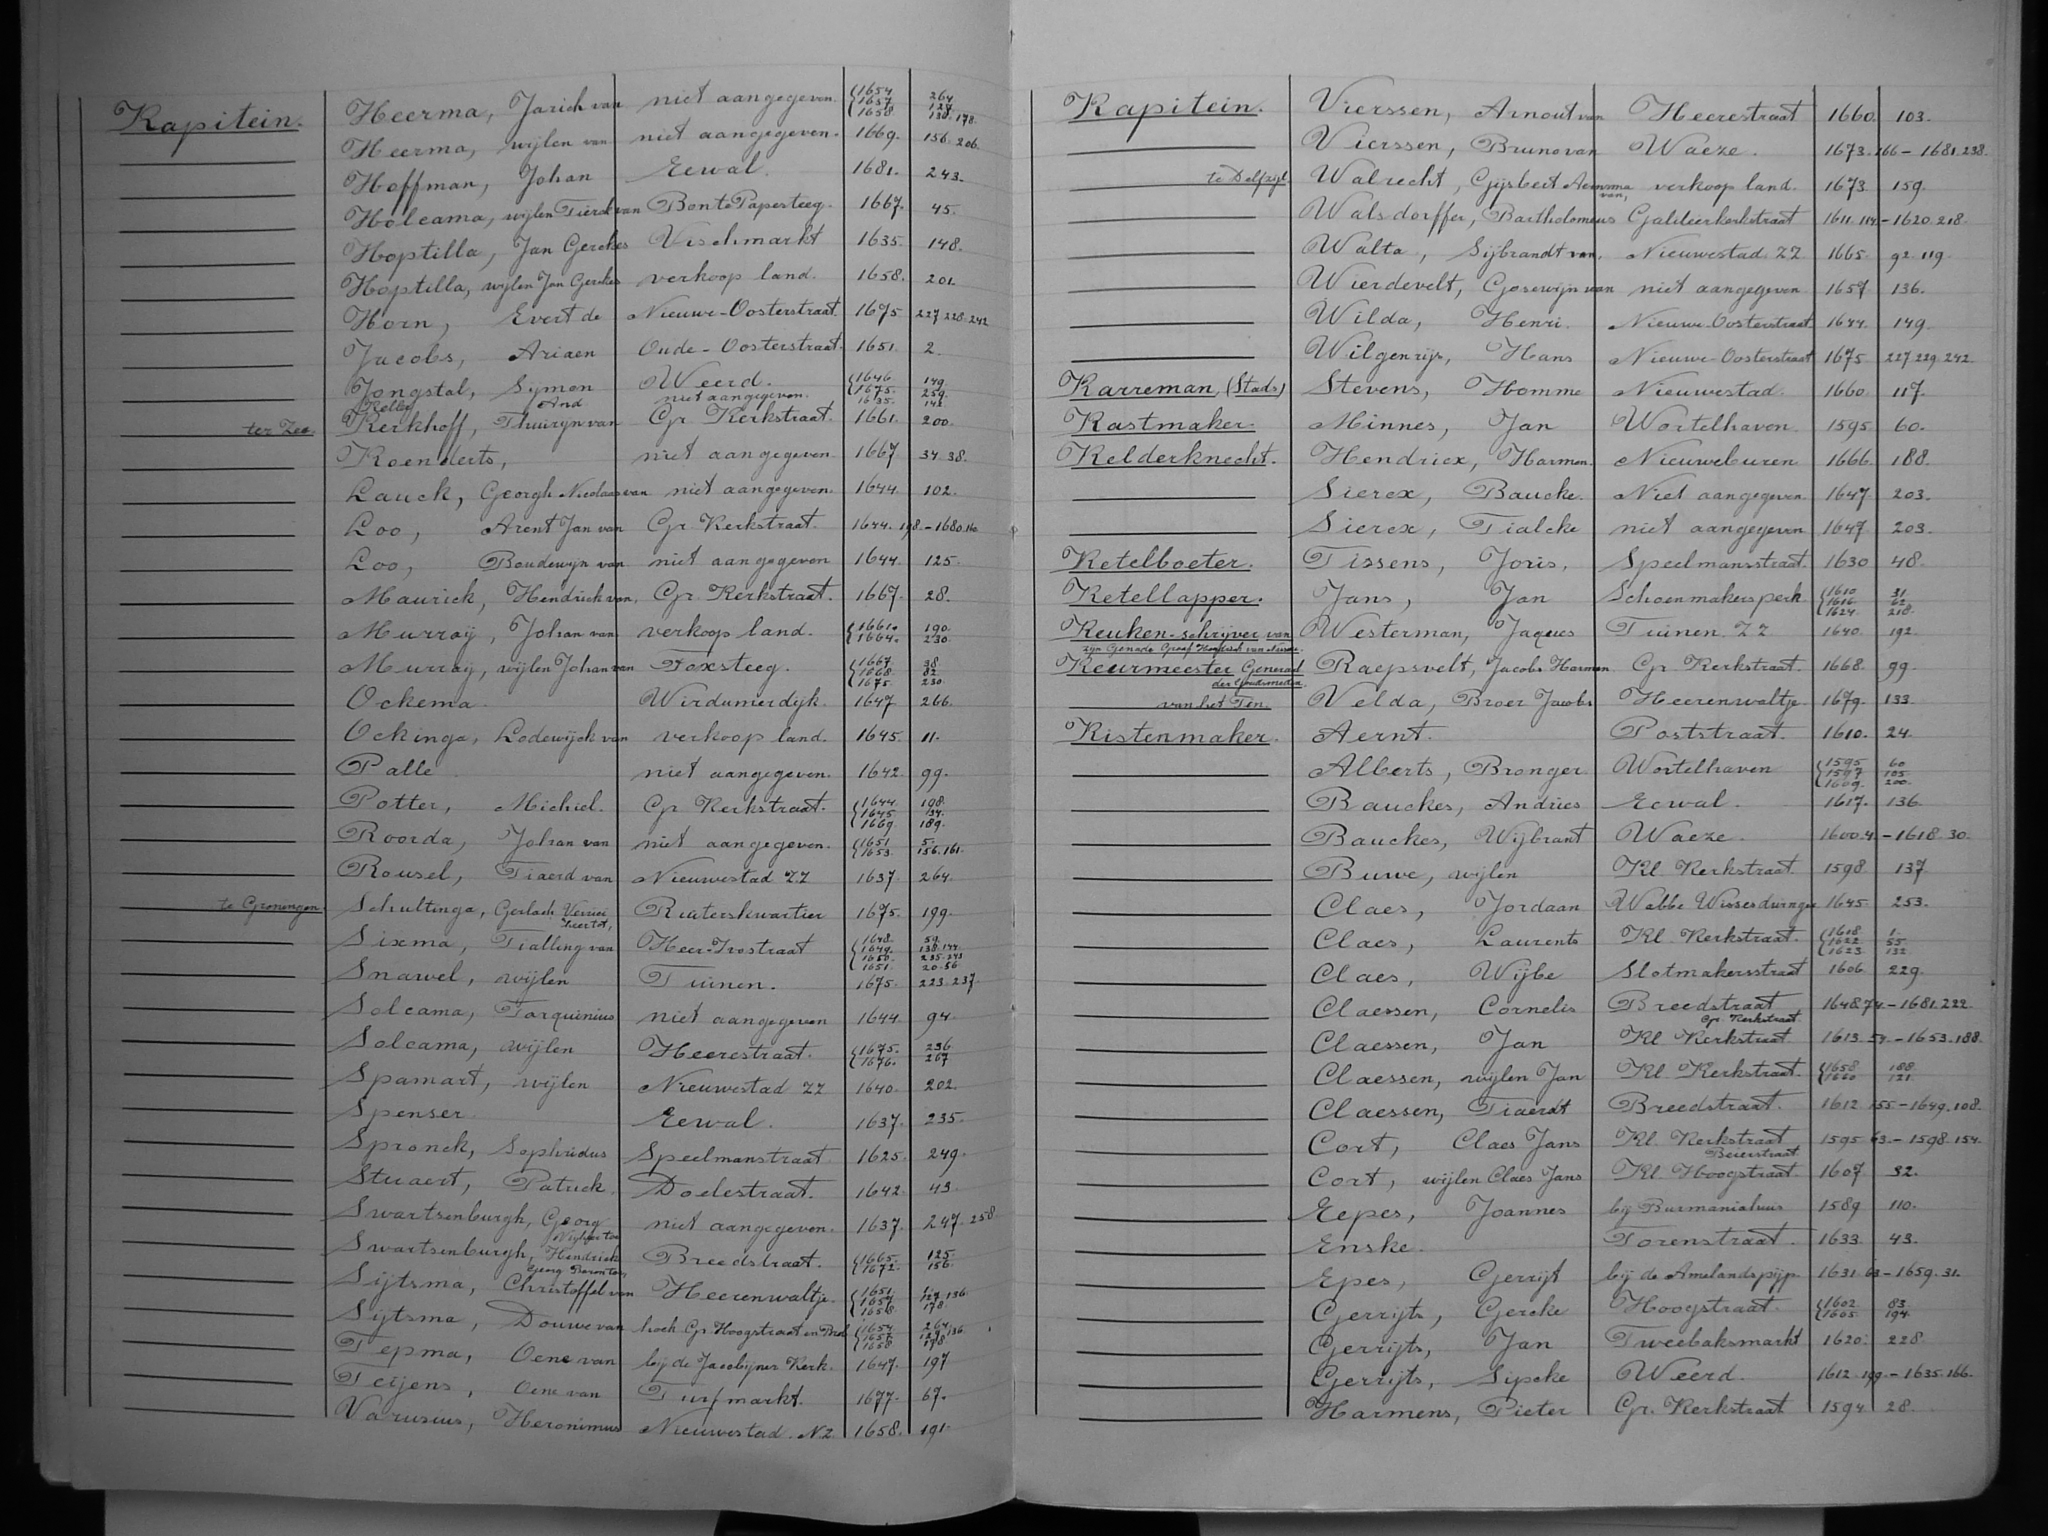 Kapitein. Heerma, Jarich van niet aangegeven. 1654 264
1657 127
1658 138. 178.
Heerma, wijlen van niet aangegeven. 1669. 156. 206.
Hoffman, Johan Eewal. 1681. 243.
Holcama, wijlen Tierck van Bonte Papesteeg. 1667. 45.
Hoptilla, Jan Gerckes Vischmarkt 1635. 148.
Hoptilla, wijlen Jan Gerckes verkoop land. 1658. 201.
Horn, Evert de Nieuwe-Oosterstraat. 1675 227 228 242
Jacobs, Ariaen Oude-Oosterstraat. 1651. 2.
Jongstal, Symon Weerd. 1646 149.
niet aangegeven. 1675. 259.
Kelle, And 1635. 142.
ter Zee. Kerkhoff, Thuryn van Gr. Kerkstraat. 1661. 200.
Roenderts, niet aangegeven. 1667 34. 38.
Lauck, Georgh Nicolaas van niet aangegeven. 1644. 102.
Loo, Arent Jan van Gr. Kerkstraat. 1644. 198. – 1680. 160.
Loo, Boudewijn van niet aangegeven 1644. 125.
Maurick, Hendrick van. Gr. Kerkstraat. 1667. 28.
Murraij, Johan van verkoop land. 1661. 190.
1664. 230.
Murraij, wijlen Johan van Foxsteeg. 1667. 38.
1668. 82.
1675. 230.
Ockema. Wirdumerdijk. 1647 266.
Ockinga, Lodewijck van verkoop land. 1645. 11.
Palle niet aangegeven. 1642. 99.
Potter, Michiel. Gr. Kerkstraat. 1644. 198.
1645. 134.
1669. 189.
Roorda, Johan van niet aangegeven. 1651 5.
1653. 156. 161.
Rousel, Tiaerd van Nieuwestad ZZ 1637. 264.
te Groningen. Schultinga, Gerlach Ruiterskwartier 1675. 199.
Sixma, Tialling van Heer-Ivostraat 1648. 59.
1649. 138. 144.
1650. 235. 243
1651. 20. 56
Snawel, wijlen Tuinen. 1675. 223. 237.
Solcama, Tarquinius niet aangegeven 1644. 94.
Solcama, wijlen Heerestraat. 1675. 236.
1676. 267
Spamart, wijlen Nieuwestad ZZ 1640. 202.
Spenser Eewal. 1637. 235.
Spronck, Sophridus Speelmanstraat 1625. 249.
Stuaert, Patrick. Doelestraat. 1642. 43.
Swartsenburgh, Georg niet aangegeven. 1637. 247. 258
Swartsenburgh, Hendrick Breedstraat. 1665. 125.
Georg Baron tot, 1672. 156.
Sijtsma, Christoffel van Heerenwaltje. 1651.
1657 127. 136.
1658. 178.
Sijtsma, Douwe van hoek Gr. Hoogstraat en 1654 264.
1657. 127. 136
1658 178
Tepma, Oene van bij de Jacobijner Kerk. 1647. 197
Teijens, Oene van Turfmarkt. 1677. 67.
Varusius, Heronimus Nieuwestad. N.Z. 1658. 191.
Kapitein. Vierssen, Arnout van Heerestraat 1660. 103.
Vierssen, Bruno van Waeze. 1673. 166 – 1681. 238.
te Delfzijl. Walrecht, Gijsbert Aemsma van, verkoop land. 1673 159.
Walsdorffer, Bartholomeus Galileerkerkstraat 1611. 114. – 1620. 218.
Walta, Sijbrandt van. Nieuwestad ZZ 1665. 92. 119.
Wierdevelt, Gosewijn van niet aangegeven 1657 136.
Wilda, Henri. Nieuwe-Oosterstraat. 1644. 149.
Wilgenrijs, Hans Nieuwe-Oosterstraat 1675 227. 229. 242.
Karreman, (Stads) Stevens, Homme Nieuwestad. 1660. 117.
Kastmaker. Minnes, Jan Wortelhaven 1595 60.
Kelderknecht. Hendricx, Harmen. Nieuweburen. 1666. 188.
Sierex, Baucke. Niet aangegeven. 1647. 203.
Sierex, Tialcke niet aangegeven 1647 203.
Ketelboeter. Tissens, Joris, Speelmansstraat. 1630 48.
Ketellapper. Jans, Jan Schoenmakersperk. 1610 31.
1616 62.
1624. 218.
Keuken-schrijver van Westerman, Jaques Tuinen. ZZ 1640. 192
zijn Genade Graef Hendrick van Nassau
Keurmeester Generael Raepsvelt, Jacobs Harmen Gr. Kerkstraat. 1668. 99.
der Goudsmeden.
van het Tin. Velda, Broer Jacobs Heerenwaltje. 1679. 133.
Kistenmaker. Aernt. Poststraat. 1610. 24.
Alberts, Bronger Wortelhaven 1595 60
1597 105.
1609. 200.
Bauckes, Andries Eewal. 1617. 136.
Bauckes, Wijbrant Waeze. 1600. 4. – 1618. 30.
Buwe, wijlen Kl. Kerkstraat. 1598 137
Claes, Jordaan Wabbe Wissesduinger 1645 253.
Claes, Laurents Kl. Kerkstraat. 1618 1.
1622 55.
1623. 132
Claes, Wijbe Slotmakersstraat 1606 229.
Claessen, Cornelis Breedstraat 1648. 74. – 1681. 222.
Gr. Kerkstraat.
Claessen, Jan Kl. Kerkstraat. 1613. 54. – 1653. 188.
Claessen, wijlen Jan Kl. Kerkstraat. 1658. 188.
1660 121.
Claessen, Tiaerdt Breedstraat. 1612 155. – 1649. 108.
Cort, Claes Jans Kl. Kerkstraat 1595 63. – 1598. 154.
Beierstraat
Cort, wijlen Claes Jans Kl. Hoogstraat 1607 32.
Eepes, Joannes bij Burmaniahuis 1589 110.
Enske. Torenstraat. 1633. 43.
Epes, Gerrijt bij de Amelandspijp. 1631. 63 – 1659. 31.
Gerrijts, Gercke Hoogstraat. 1602 83.
1605. 194.
Gerrijts, Jan Tweebaksmarkt 1620. 228
Gerrijts, Sipcke Weerd. 1612. 199. – 1635. 166.
Harmens, Pieter Gr. Kerkstraat 1594. 28.